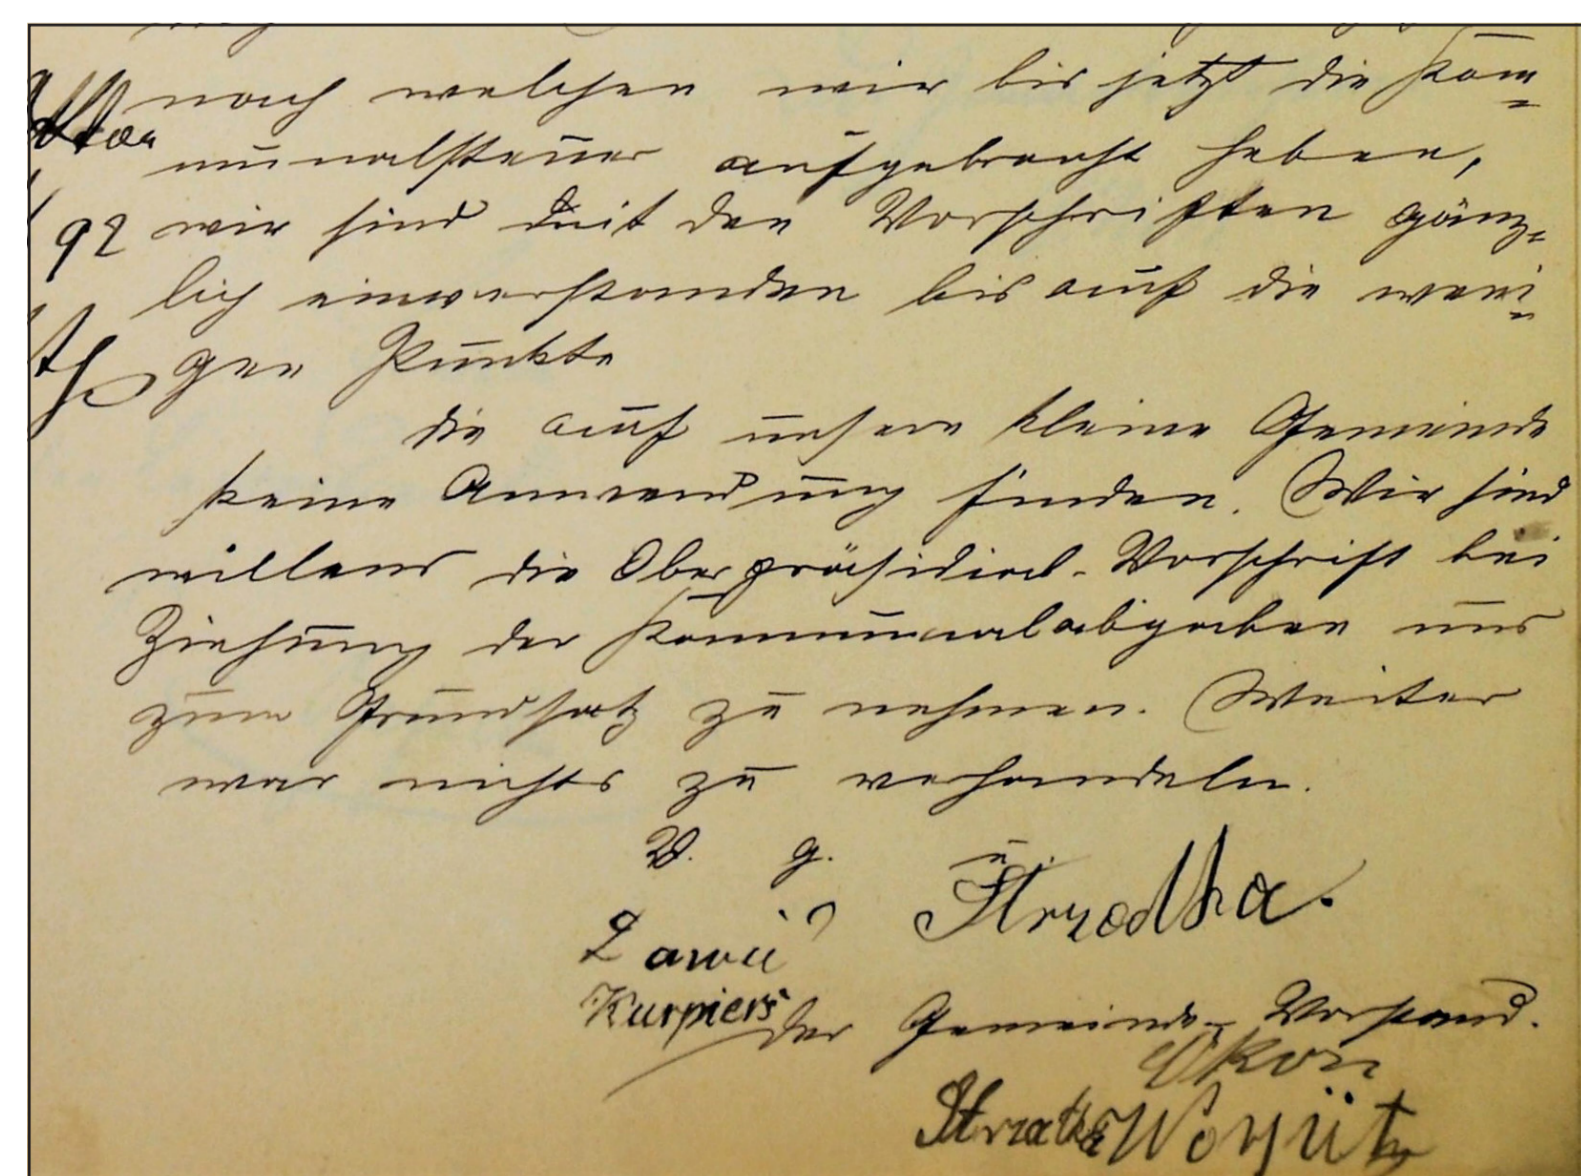 nach welchen wir bis jetzt die Kom=
munalsteuer aufgebracht haben,
92 wir sind mit den Vorschriften gänz=
lich einverstanden bis auf die weni=
gen Punkte
die auf unsere kleine Gemeinde
keine Anwendung finden. Wir sind
willens die Oberpräsidial-Vorschrift bei
Ziehung der Kommunalabgaben uns
zum Grundsatz zu nehmen. Weiter
war nichts zu verhandeln.
V. g. u.
Strzodka.
Kurpiers
Der Gemeinde-Vorstand.
Okon